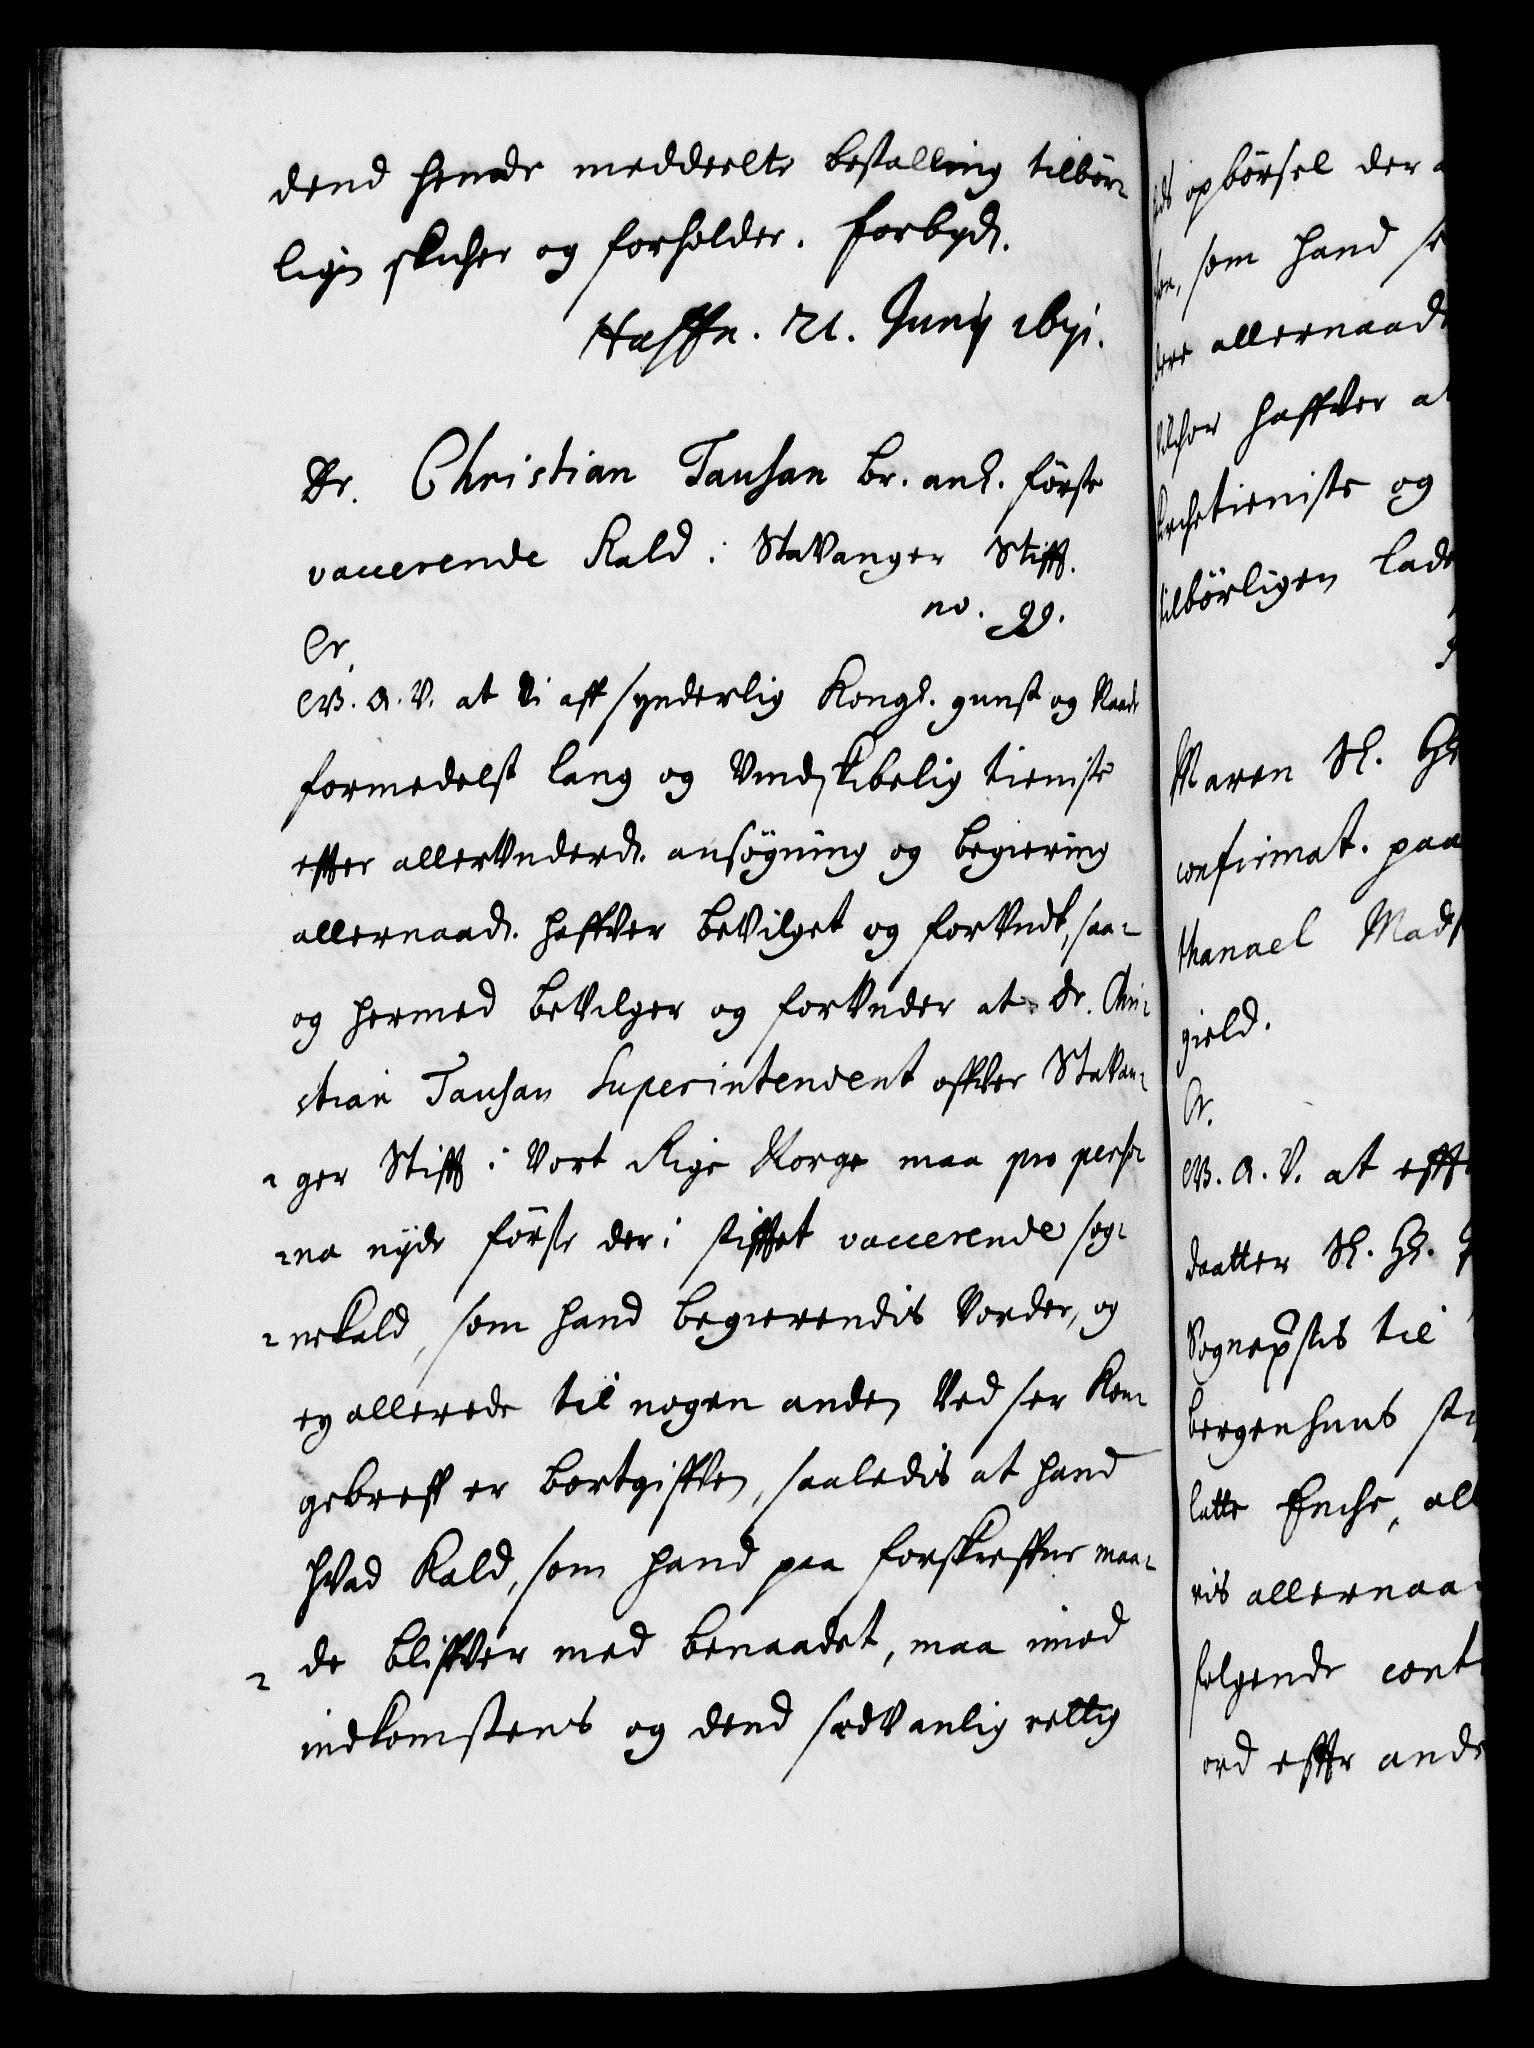 dend hende meddeelte bestalling tilbør-
ligen skicher og forholder. Forbyd.
Haffn. 21. Junij 1691.
Dr. Christian Tausan br. anl. første
vacerende Kald i StaVanger Stifft.
no. 99.
Cr.
G.A.V. at Vi aff synderlig Kongl. gunst og Naade
formedelst lang og Vindskibelig tieniste
effter allerVnderd. ansøgning og begiering
allernaad. haffver beVilget og forVndt, saa-
og hermed beVilger og forVnder at Dr. Chri-
stian Tausan Superintendent offver StaVan-
ger Stifft i Vort Rige Norge maa pro perso-
na nyde første der i stifftet vacerende sog-
nekald, som hand begierendis Vorder, og
ey allerede til nogen anden Ved Exsp Kon-
gebreff er bortgifften, saaledis at hand
hVad Kald, som hand paa forskreffne maa-
de bliffver med benaadet, maa imod
indkomstens og dend sædVanlig rettig
opbørsel der
som hand
allernaad
haffver
tieniste og
tilbørligen lade
Maren Sl. Hr
confirmat. paa
thanael Mads
gield.
Cr.
G.A.V. at efft
daatter Sl. Hr.
Sognepstis til
bergenhuus sti
latte Enche, all
ris allernaa
følgende cont
ord effter ande